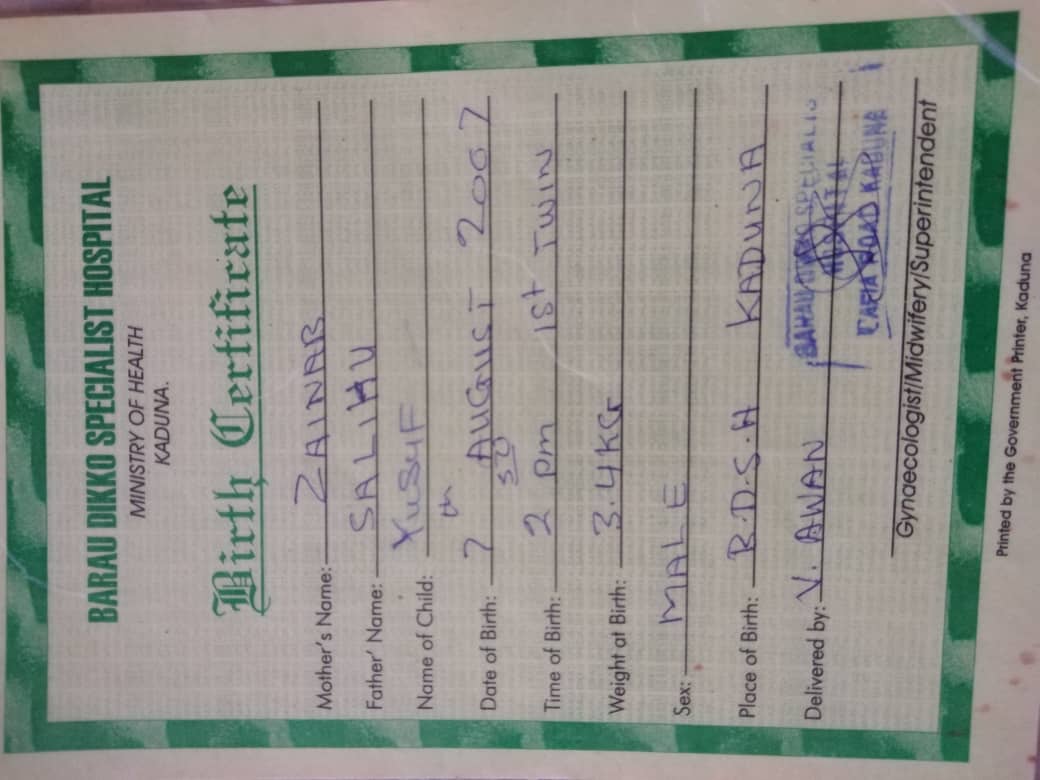 BARAU DIKKO SPECIALIST HOSPITAL
MINISTRY OF HEALTH
KADUNA.
Birth Certificate
Mother's Name: ZAINAB
Father' Name: SALIHU
Name of Child: YUSUF
Date of Birth: 7th AUGUST 2007
Time of Birth: 2 30 pm 1st TWIN
Weight at Birth: 3.4KG
Sex: MALE
Place of Birth: B.D.S.H KADUNA
Delivered by: V. AWAN
BARAU DIKKO SPECIALIS
HOSPITAL
LAFIA ROAD KADUNA
Gynaecologist/Midwifery/Superintendent
Printed by the Government Printer, Kaduna